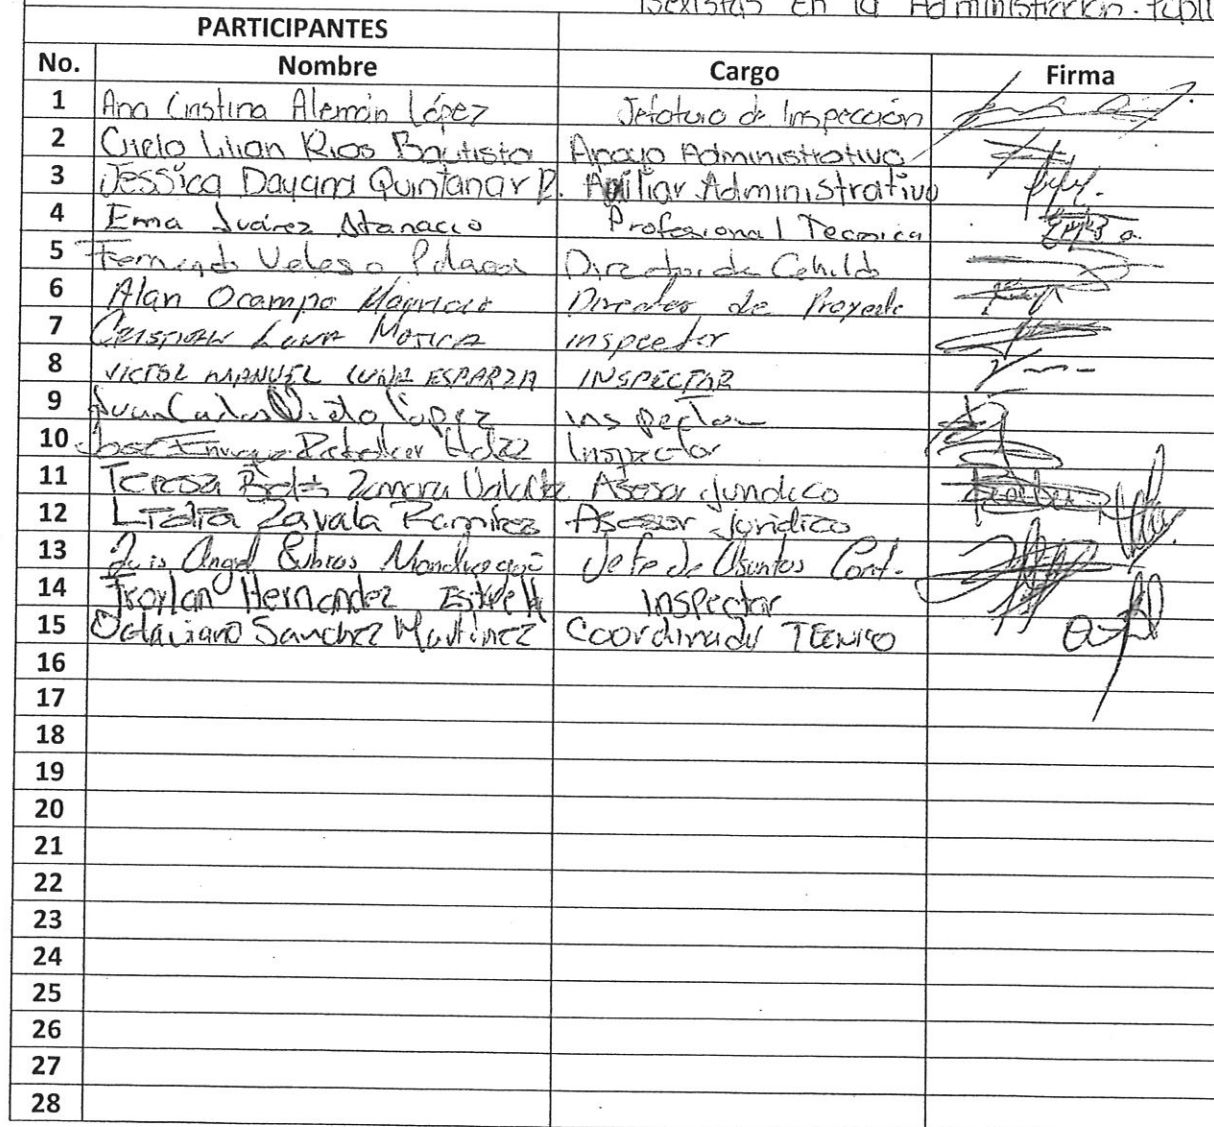 sexistas en la Administración. públi
PARTICIPANTES
No. Nombre Cargo Firma
1 Ana Cristina Alemán López Jefatura de Inspección
2 Cielo Lilian Rios Bautista Apoyo Administrativo
3 Jessica Dayana Quintanar R. Auxiliar Administrativo
4 Ema Juárez Atanacio Profesional Tecnica
5 Fernando Veloso Director de
6 Alan Ocampo Mauricio Director de Proyecto
7 Cristian Luna Mojica inspector
8 VICTOR MANUEL LUNA ESPARZA INSPECTOR
9 Juan Carlos Nieto López inspector
10 José Enrique Hdez Inspector
11 Teresa Zamora Asesor Jurídico
12 Lidia Zavala Ramírez Asesor Jurídico
13 Luis Angel Jefe de Asuntos Cont.
14 Froylan Hernandez Inspector
15 Octaviano Sanchez Martínez Coordinador TECNICO
16
17
18
19
20
21
22
23
24
25
26
27
28